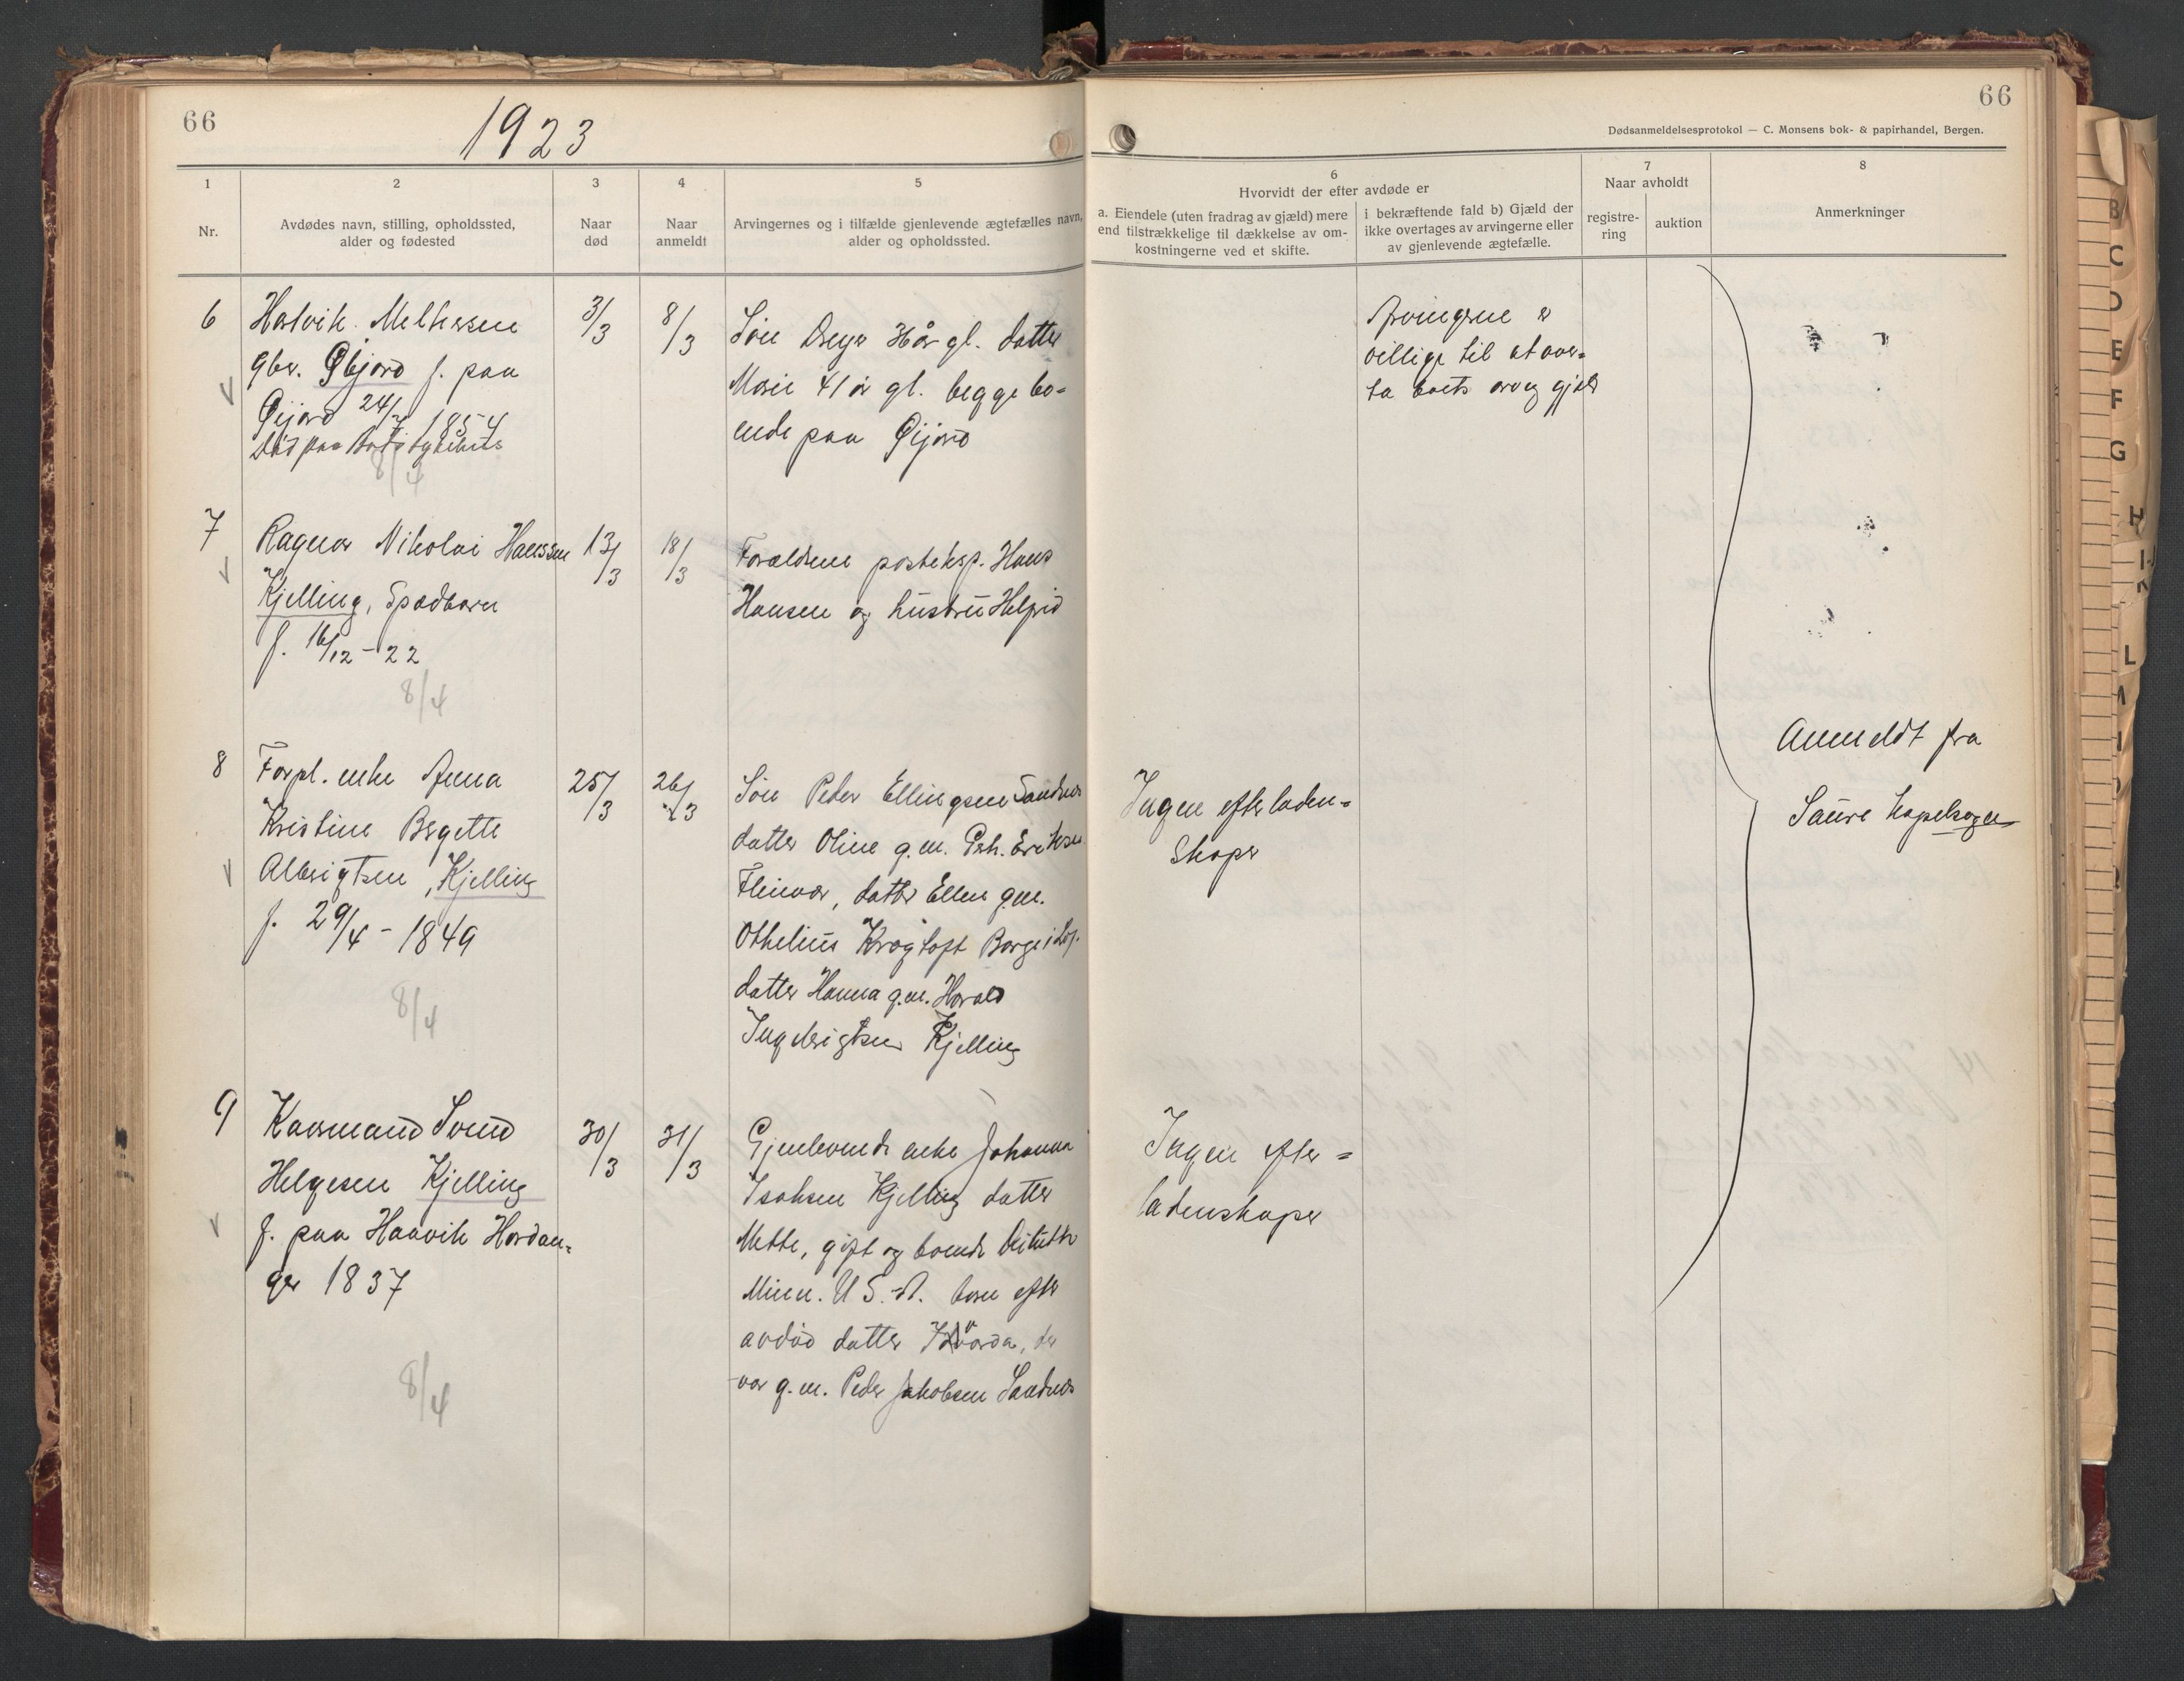 66
1923
1
2
3
4
5
Nr.
Avdødes navn, stilling, opholdssted,
alder og fødested
Naar
død
Naar
anmeldt
Arvingernes og i tilfælde gjenlevende ægtefælles navn,
alder og opholdssted.
6
Hartvik Meltersen
gbr. Øijord f. paa
Øijord 24/7 1854
Død paa Bodø sykehus
8/4
3/3
8/3
Søn Dreyer 36 år gl. datter
Marie 41 år gl. begge bo-
ende paa Øijord
7
Ragnar Nikolai Hanssen
Kjelling, Spædbarn
f. 16/12-22
8/4
13/3
18/3
Forældrene posteksp. Hans
Hansen og hustru Helfrid
8
Forpl. enke Anna
Kristine Bergette
Albrigtsen, Kjelling
f. 29/4-1849
8/4
25/3
26/3
Søn Peder Ellingsen Sandnes
datter Oline g.m. Pet. Eriksen
Fleinvær, datter Ellen g.m.
Othelius Krogtoft Borge i Lof.
datter Hanna g.m. Harald
Ingebrigtsen Kjelling
9
Kaarmand Svend
Helgesen Kjelling
f. paa Haavik Hardan-
ger 1837
8/4
30/3
31/3
Gjenlevende enke Johanna
Isaksen Kjelling datter
Mette, gift og boende
Minn. U.S.A. barn efter
avdød datter der
var g.m. Peder Jakobsen Sandnes
66
Dødsanmeldelsesprotokol — C. Monsens bok- & papirhandel, Bergen.
6
Hvorvidt der efter avdøde er
a. Eiendele (uten fradrag av gjæld) mere
end tilstrækkelige til dækkelse av om-
kostningerne ved et skifte.
i bekræftende fald b) Gjæld der
ikke overtages av arvingerne eller
av gjenlevende ægtefælle.
7
Naar avholdt
registre-
ring
auktion
8
Anmerkninger
Arvingerne er
villige til at over-
ta boets arv og gjæld
Ingen efterladen-
skaper
Ingen efter-
ladenskaper
Anmeldt fra
Saura kapelsogn
B
C
D
E
F
G
H
I
K
L